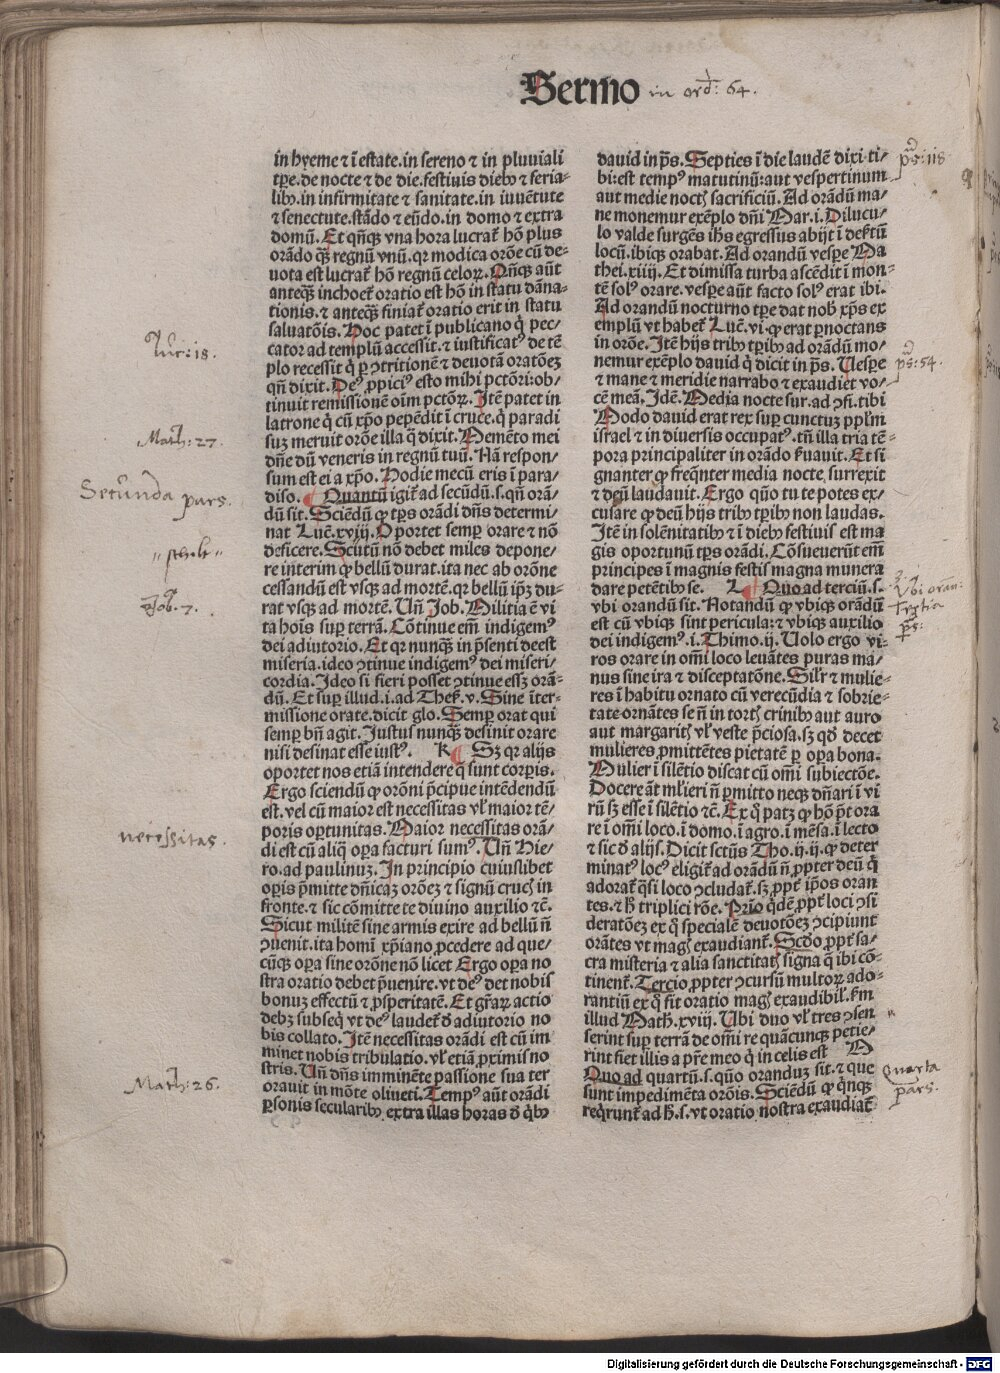 Sermo in ord: 64.
in hyeme ⁊ ī estate. in sereno ⁊ in pluuiali
tꝑe. de nocte ⁊ de die. festiuis dieb⁹ ⁊ feria⸗
lib⁹. in infirmitate ⁊ sanitate. in iuuētute
⁊ senectute. stādo ⁊ eūdo. in domo ⁊ extra
domū. Et qn̄qꝫ vna hora lucrat᷑ hō plus
orādo qꝫ regnū vnū. qꝛ modica orōe cū de⸗
uota est lucrat᷑ hō regnū celoꝝ. Qn̄qꝫ aūt
anteqꝫ inchoet᷑ oratio est hō in statu dāna⸗
tionis. ⁊ anteqꝫ finiat᷑ oratio erit in statu
saluatōis. Hoc patet ī publicano q̇ pec⸗
cator ad templū accessit. ⁊ iustificat⁹ de tē
plo recessit q̇ ꝑ ꝯtritionē ⁊ deuotā oratōeꝫ
qn̄ dixit. De⁹ ꝓpici⁹ esto mihi pctōri: ob⸗
tinuit remissionē oīm pctōꝝ. Itē patet in
latrone q̇ cū xp̄o pepēdit ī cruce. q̇ paradi
suꝫ meruit orōe illa q̄ dixit. Memēto mei
dn̄e dū veneris in regnū tuū. Nā respon⸗
sum est ei a xp̄o. Hodie mecū eris ī para⸗
diso. ¶ Quantū igit᷑ ad secūdū. s. qn̄ orā⸗
dū sit. Sciēdū ꝙ tꝑs orādi dn̄s determi⸗
nat Luc̄. xviij. Oportet semꝑ orare ⁊ nō
deficere. Scutū nō debet miles depone⸗
re interim ꝙ bellū durat. ita nec ab orōne
cessandū est vsqꝫ ad mortē. qꝛ bellū ip̄ꝫ du⸗
rat vsqꝫ ad mortē. Un̄ Job. Militia ē vi
ta hoīs suꝑ terrā. Cōtinue em̄ indigem⁹
dei adiutorio. Et qꝛ nunqꝫ in p̄senti deest
miseria. ideo ꝯtinue indigem⁹ dei miseri⸗
cordia. Ideo si fieri posset ꝯtinue essꝫ orā⸗
dū. Et suꝑ illud. i. ad Thes̄. v. Sine īter⸗
missione orate. dicit glo. Semꝑ orat qui
semꝑ bn̄ agit. Justus nunqꝫ desinit orare
nisi desinat esse iust⁹. K ¶ Sꝫ qꝛ alijs
oportet nos etiā intendere q̄ sunt corꝑis.
Ergo sciendū ꝙ orōni p̄cipue intēdendū
est. vel cū maior est necessitas vl᷑ maior tē⸗
poris oꝑtunitas. Maior necessitas orā⸗
di est cū aliq̄ oꝑa facturi sum⁹. Un̄ Hie⸗
ro. ad paulinuꝫ. In principio cuiuslibet
oꝑis p̄mitte dn̄icaꝫ orōeꝫ ⁊ signū crucꝭ in
fronte. ⁊ sic cōmitte te diuino auxilio ⁊c̄.
Sicut militē sine armis exire ad bellū n̄
ꝯuenit. ita homī xp̄iano ꝓcedere ad que⸗
cūqꝫ oꝑa sine orōne nō licet Ergo oꝑa no
stra oratio debet p̄uenire. vt de⁹ det nobis
bonuꝫ effectū ⁊ ꝓsperitatē. Et gr̄aꝝ actio
debꝫ subseq̇ vt de⁹ laudet᷑ ꝺ adiutorio no
bis collato. Itē necessitas orādi est cū im
minet nobis tribulatio. vl᷑ etiā ꝓximis no
stris. Un̄ dn̄s imminēte passione sua ter
orauit in mōte oliueti. Temp⁹ aūt orādi
ꝑsonis secularib⁹ extra illas horas ꝺ qb⁹
dauid in ps̄. Septies ī die laudē dixi ti⸗
bi: est temp⁹ matutinū: aut vespertinum
aut medie noctꝭ sacrificiū. Ad orādū ma⸗
ne monemur exēplo dn̄i Mar. i. Dilucu⸗
lo valde surgēs ihs̄ egressus abijt ī des̄tū
locū. ibiqꝫ orabat. Ad orandū vesꝑe Ma
thei. xiiij. Et dimissa turba ascēdit ī mon⸗
tē sol⁹ orare. vesꝑe aūt facto sol⁹ erat ibi.
Ad orandū nocturno tꝑe dat nob̄ xp̄s ex
emplū vt habet᷑ Luc̄. vi. ꝙ erat ꝑnoctans
in orōe. Itē hijs trib⁹ tꝑib⁹ ad orādū mo⸗
nemur exēplo dauid q̇ dicit in ps̄. Uesꝑe
⁊ mane ⁊ meridie narrabo ⁊ exaudiet vo⸗
cē meā. Idē. Media nocte sur. ad ꝯfi. tibi
Modo dauid erat rex suꝑ cunctuꝫ ppl̄m
israel ⁊ in diuersis occupat⁹. tn̄ illa tria tē⸗
pora principaliter in orādo s̄uauit. Et si
gnanter ꝙ freq̄nter media nocte surrexit
⁊ deū laudauit. Ergo quō tu te potes ex⸗
cusare ꝙ deū hijs trib⁹ tꝑib⁹ non laudas.
Itē in solēnitatib⁹ ⁊ ī dieb⁹ festiuis est ma
gis oportunū tꝑs orādi. Cōsueuerūt em̄
principes ī magnis festis magna munera
dare petētib⁹ se. L ¶ Quo ad terciū. s.
vbi orandū sit. Notandū ꝙ vbiqꝫ orādū
est cū vbiqꝫ sint pericula: ⁊ vbiqꝫ auxilio
dei indigem⁹. i. Thimo. ij. Uolo ergo vi⸗
ros orare in om̄i loco leuātes puras ma⸗
nus sine ira ⁊ disceptatōne. Silr̄ ⁊ mulie⸗
res ī habitu ornato cū verecūdia ⁊ sobrie⸗
tate ornātes se n̄ in tortꝭ crinib⁹ aut auro
aut margaritꝭ vl᷑ veste p̄ciosa. sꝫ qd̄ decet
mulieres ꝓmittētes pietatē ꝑ oꝑa bona.
Mulier ī silētio discat cū om̄i subiectōe.
Docere āt ml̄ieri n̄ ꝑmitto neqꝫ dn̄ari ī vi
rū sꝫ esse ī silētio ⁊c̄. Ex q̇ patꝫ ꝙ hō p̄t ora
re ī om̄i loco. ī domo. ī agro. ī mēsa. ī lecto
⁊ sic ꝺ alijs. Dicit sctūs Tho. ij. ij. ꝙ deter
minat⁹ loc⁹ eligit᷑ ad orādū n̄ ꝓpter deū q̇
adorat᷑ q̄si loco ꝯcludat᷑. sꝫ ꝓpt᷑ ip̄os oran
tes. ⁊ h̄ triplici rōe. Prīo q̇dē ꝓpt᷑ loci ꝯsi
deratōeꝫ ex q̇ specialē deuotōeꝫ ꝯcipiunt
orātes vt magꝭ exaudiant᷑. Scd̄o ꝓpt᷑ sa⸗
cra misteria ⁊ alia sanctitatꝭ signa q̄ ibi cō⸗
tinent᷑. Tercio ꝓpter ꝯcursū multoꝝ ado⸗
rantiū ex q̇ fit oratio magꝭ exaudibil᷑. s̄m
illud Math̄. xviij. Ubi duo vl᷑ tres ꝯsen
serint suꝑ terrā de om̄i re quācunqꝫ petie⸗
rint fiet illis a pr̄e meo q̇ in celis est M
Quo ad quartū. s. quō oranduꝫ sit. ⁊ que
sunt impedimēta orōis. Sciēdū ꝙ qn̄qꝫ
req̇runt᷑ ad h̄. s. vt oratio nostra exaudiat᷑
Luc: 18.
Math: 27.
Secūnda pars.
Job. 7.
necessitas.
Math: 26.
ps: 118
ps: 54.
Vbi oran:
Tertia
ps:
quarta
pars.
Digitalisierung gefördert durch die Deutsche Forschungsgemeinschaft - DFG